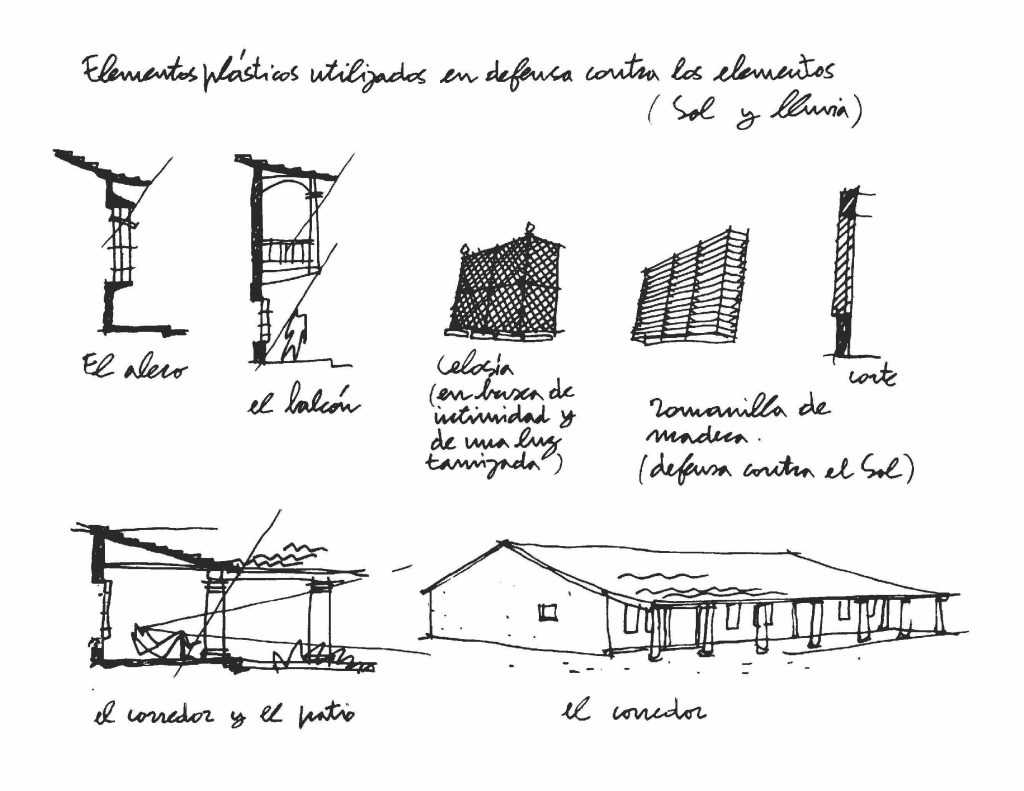 Elementos plásticos utilizados en defensa contra los elementos
(Sol y lluvia)
El alero
el balcón
celosía
(en busca de
intimidad y
de una luz
tamizada)
romanilla de
madera.
(defensa contra el Sol)
corte
el corredor y el patio
el corredor